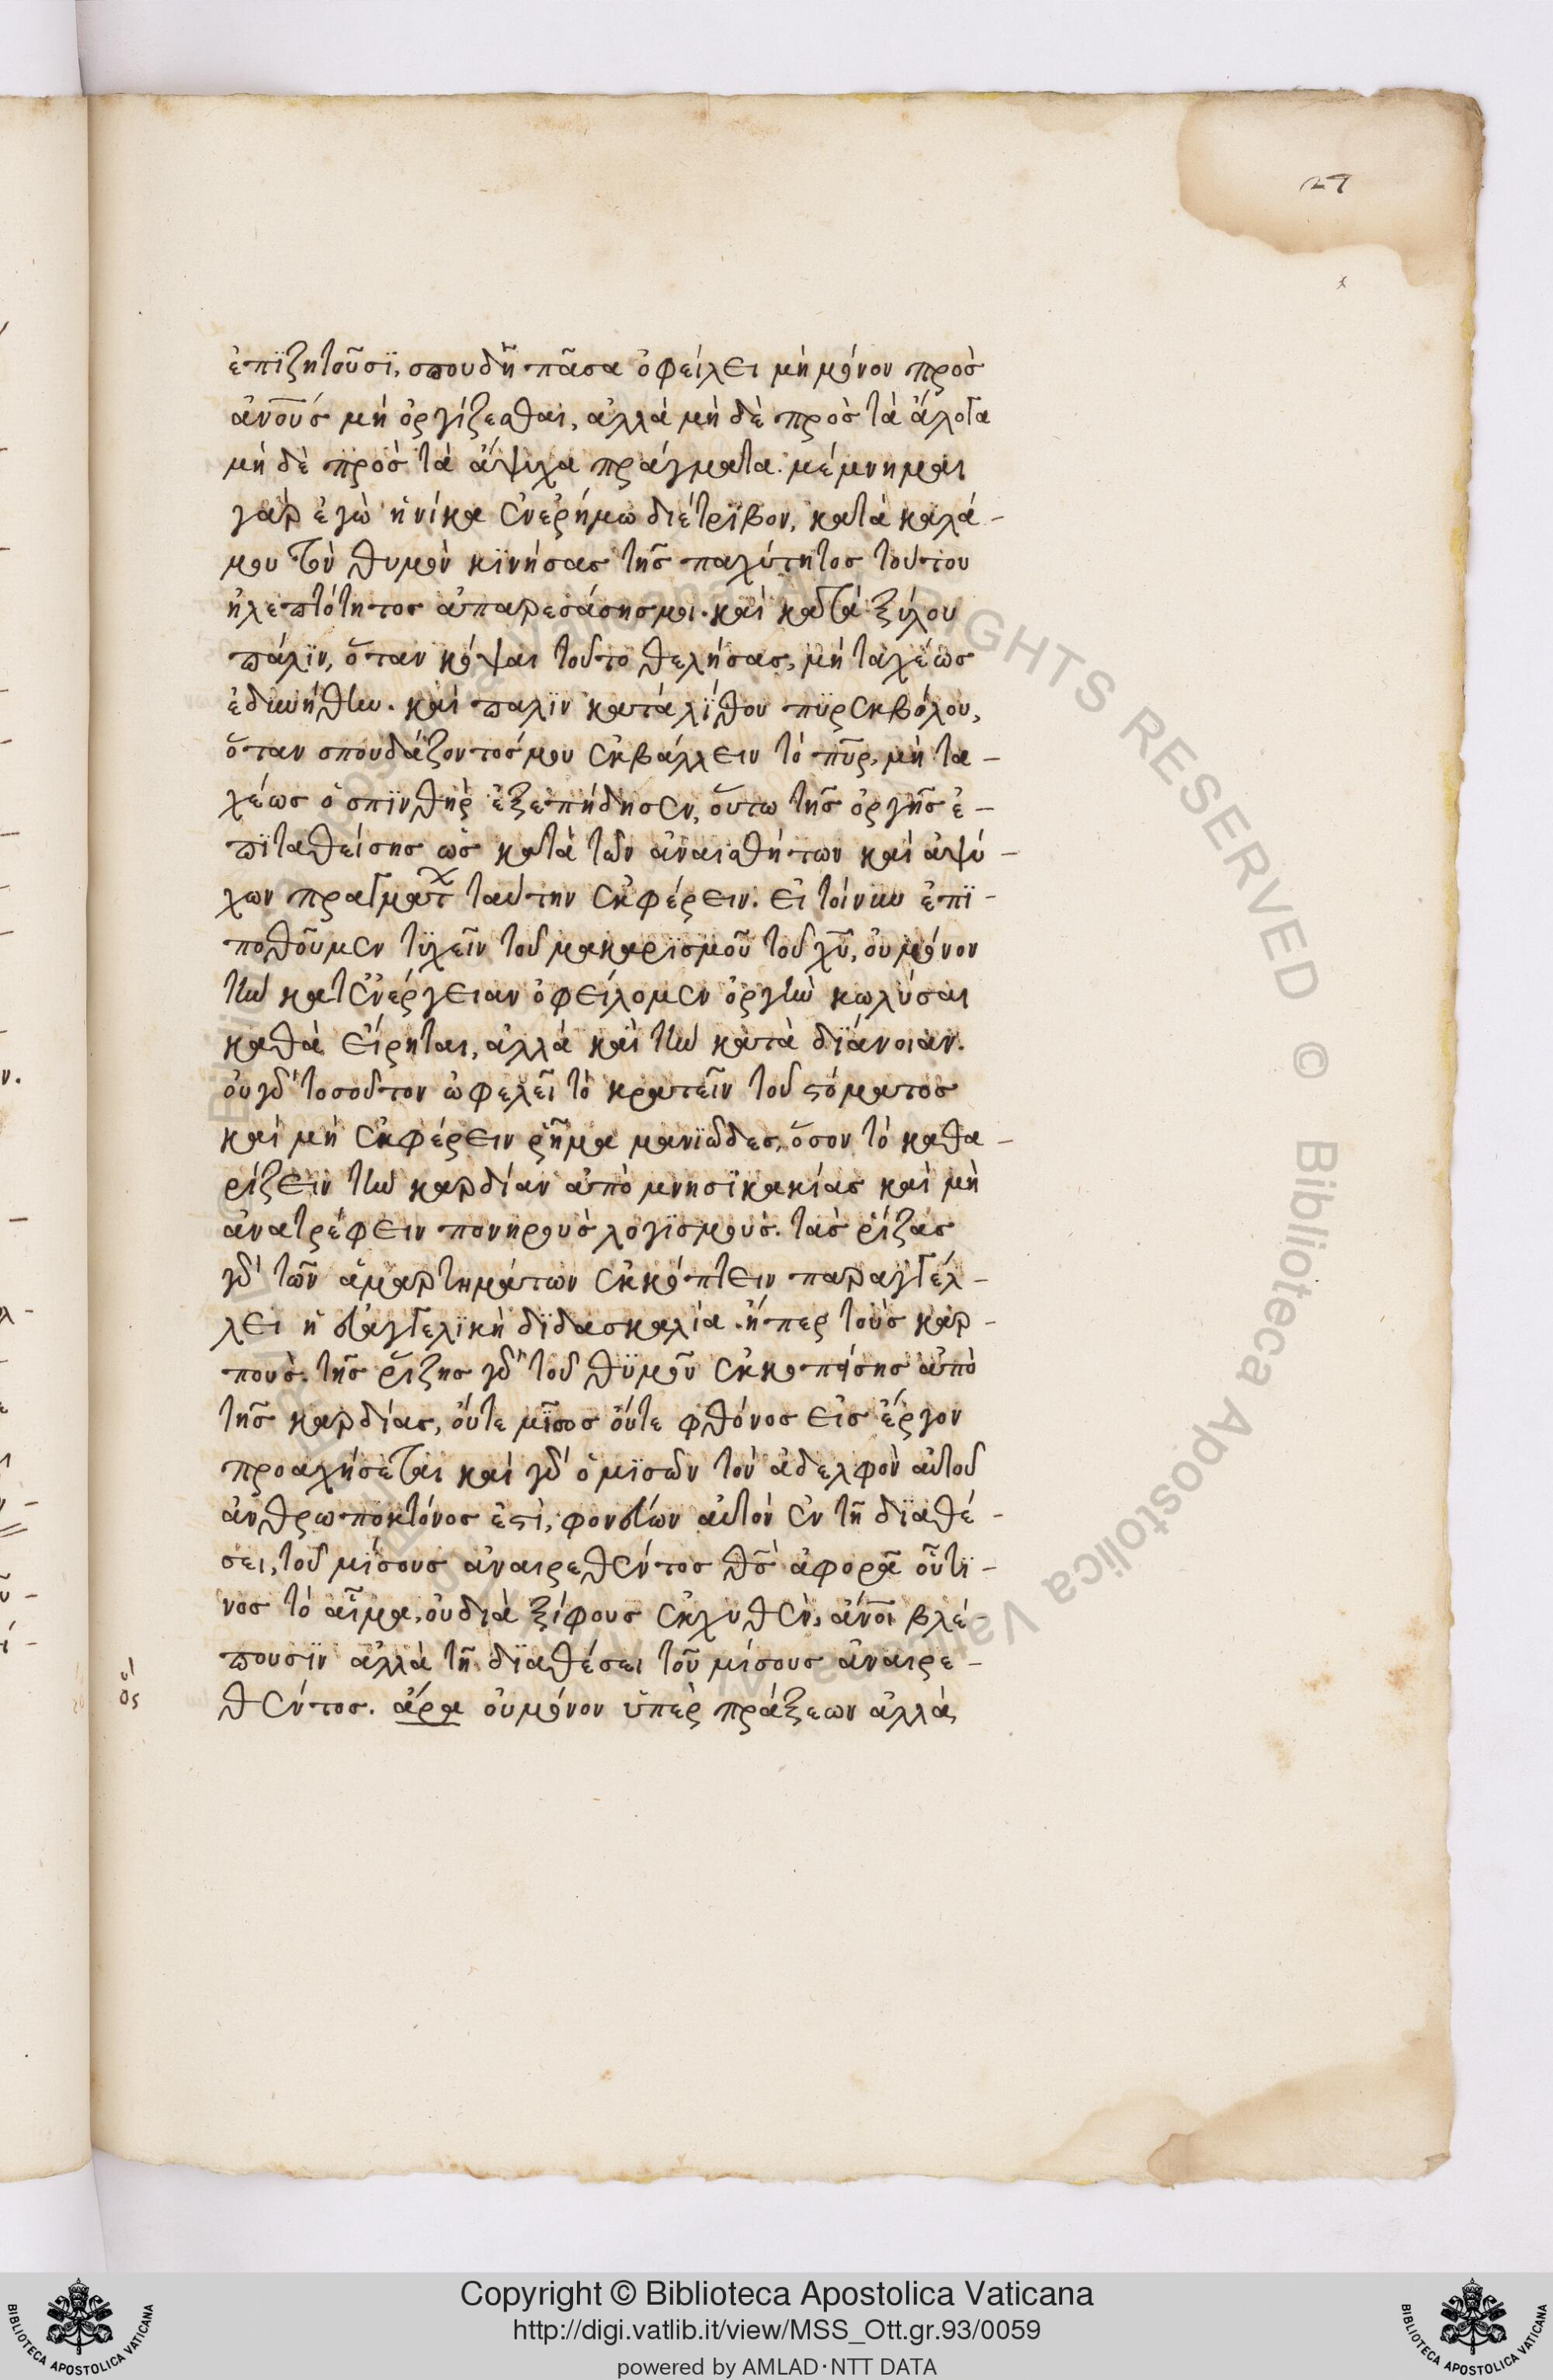 27
ἐπϊζητοῦσϊ, σπουδῆ πᾶσα ὀφείλει μὴ μόνον πρὸσ
ἀνουσ μὴ ὀργίζεσθαι, ἀλλὰ μὴ δὲ πρὸσ τὰ ἄλογα
μὴ δὲ πρὸσ τὰ ἄψυχα πράγματα. μέμνημαι
γὰρ ἐγὼ ἡνίκα ἐνερήμω διέτριβον, κατὰ καλά-
μου τὸν θυμὸν κϊνήσασ τῆσ παχύτητοσ τούτου
ἠλεπτότητοσ ἀπαρεσάσησμοι. καὶ κατὰ ξύλου
πάλϊν, ὅταν κόψαι τοῦτο θελήσασ, μὴ ταχέωσ
ἐδυνήθην. καὶ παλϊν κατὰ λΐθου πϋρεκβόλου,
ὅταν σπουδάζοντοσμου ἐκβάλλειν τὸ πῦρ, μὴ τα-
χέωσ ὁ σπϊνθὴρ ἐξεπήδησεν, οὕτω τῆσ ὀργῆσ ἐ-
πϊταθείσησ ὡσ κατὰ τῶν ἀναισθήτων καὶ ἀψύ-
χων πραγμάτ ταύτην ἐκφέρειν. εἰ τοίνυν ἐπϊ-
ποθοῦμεν τϋχεῖν τοῦ μακαρϊσμοῦ τοῦ χυ, οὐ μόνον
τὴν κατἐνέργειαν ὀφείλομεν ὀργὴν κωλύσαι
καθὰ εἴρηται, ἀλλὰ καὶ τὴν κατὰ διάνοιαν.
οὐ γὰρ τοσοῦτον ὠφελεῖ τὸ κρατεῖν τοῦ στόματοσ
καὶ μὴ ἐκφέρειν ῥῆμα μανϊῶδεσ, ὅσον τὸ καθα-
ρίζειν τὴν καρδίαν ἀπὸ μνησϊκακίασ καὶ μὴ
ἀνατρέφειν πονηροὺσ λογϊσμούσ. τὰσ ῥίζασ
γὰρ τῶν ἁμαρτημάτων ἐκκόπτειν παραγγέλ-
λει ἡ εὐαγγελϊκὴ δϊδασκαλία. ἤπερ τοὺσ καρ-
πούσ. τῆσ ῥίζησ γὰρ τοῦ θϋμοῦ ἐκκοπείσησ ἀπὸ
τῆσ καρδίασ, οὔτε μῖσοσ οὔτε φθόνοσ εἰσ ἔργον
προαχήσεται καὶ γὰρ ὁ μϊσῶν τὸν ἀδελφὸν αὐτοῦ
ἀνθρωποκτόνοσ ἐστὶ, φονεύων αὐτὸν ἐν τῆ δϊαθέ-
σει, τοῦ μίσουσ ἀναιρεθέντοσ θσ ἀφορᾶ οὗτϊ-
νοσ τὸ αἷμα, οὐ διὰ ξίφουσ ἐκχυθὲν, ἄνοι βλέ-
πουσϊν ἀλλὰ τῆ δϊαθέσει τοῦ μίσουσ ἀναιρε-
θέντοσ. ἄρα οὐμόνον ὑπὲρ πράξεων ἀλλὰ
Copyright © Biblioteca Apostolica Vaticana
http://digi.vatlib.it/view/MSS_Ott.gr.93/0059
powered by AMLAD·NTT DATA
BIBLIOTECA APOSTOLICA VATICANA
BIBLIOTECA APOSTOLICA VATICANA